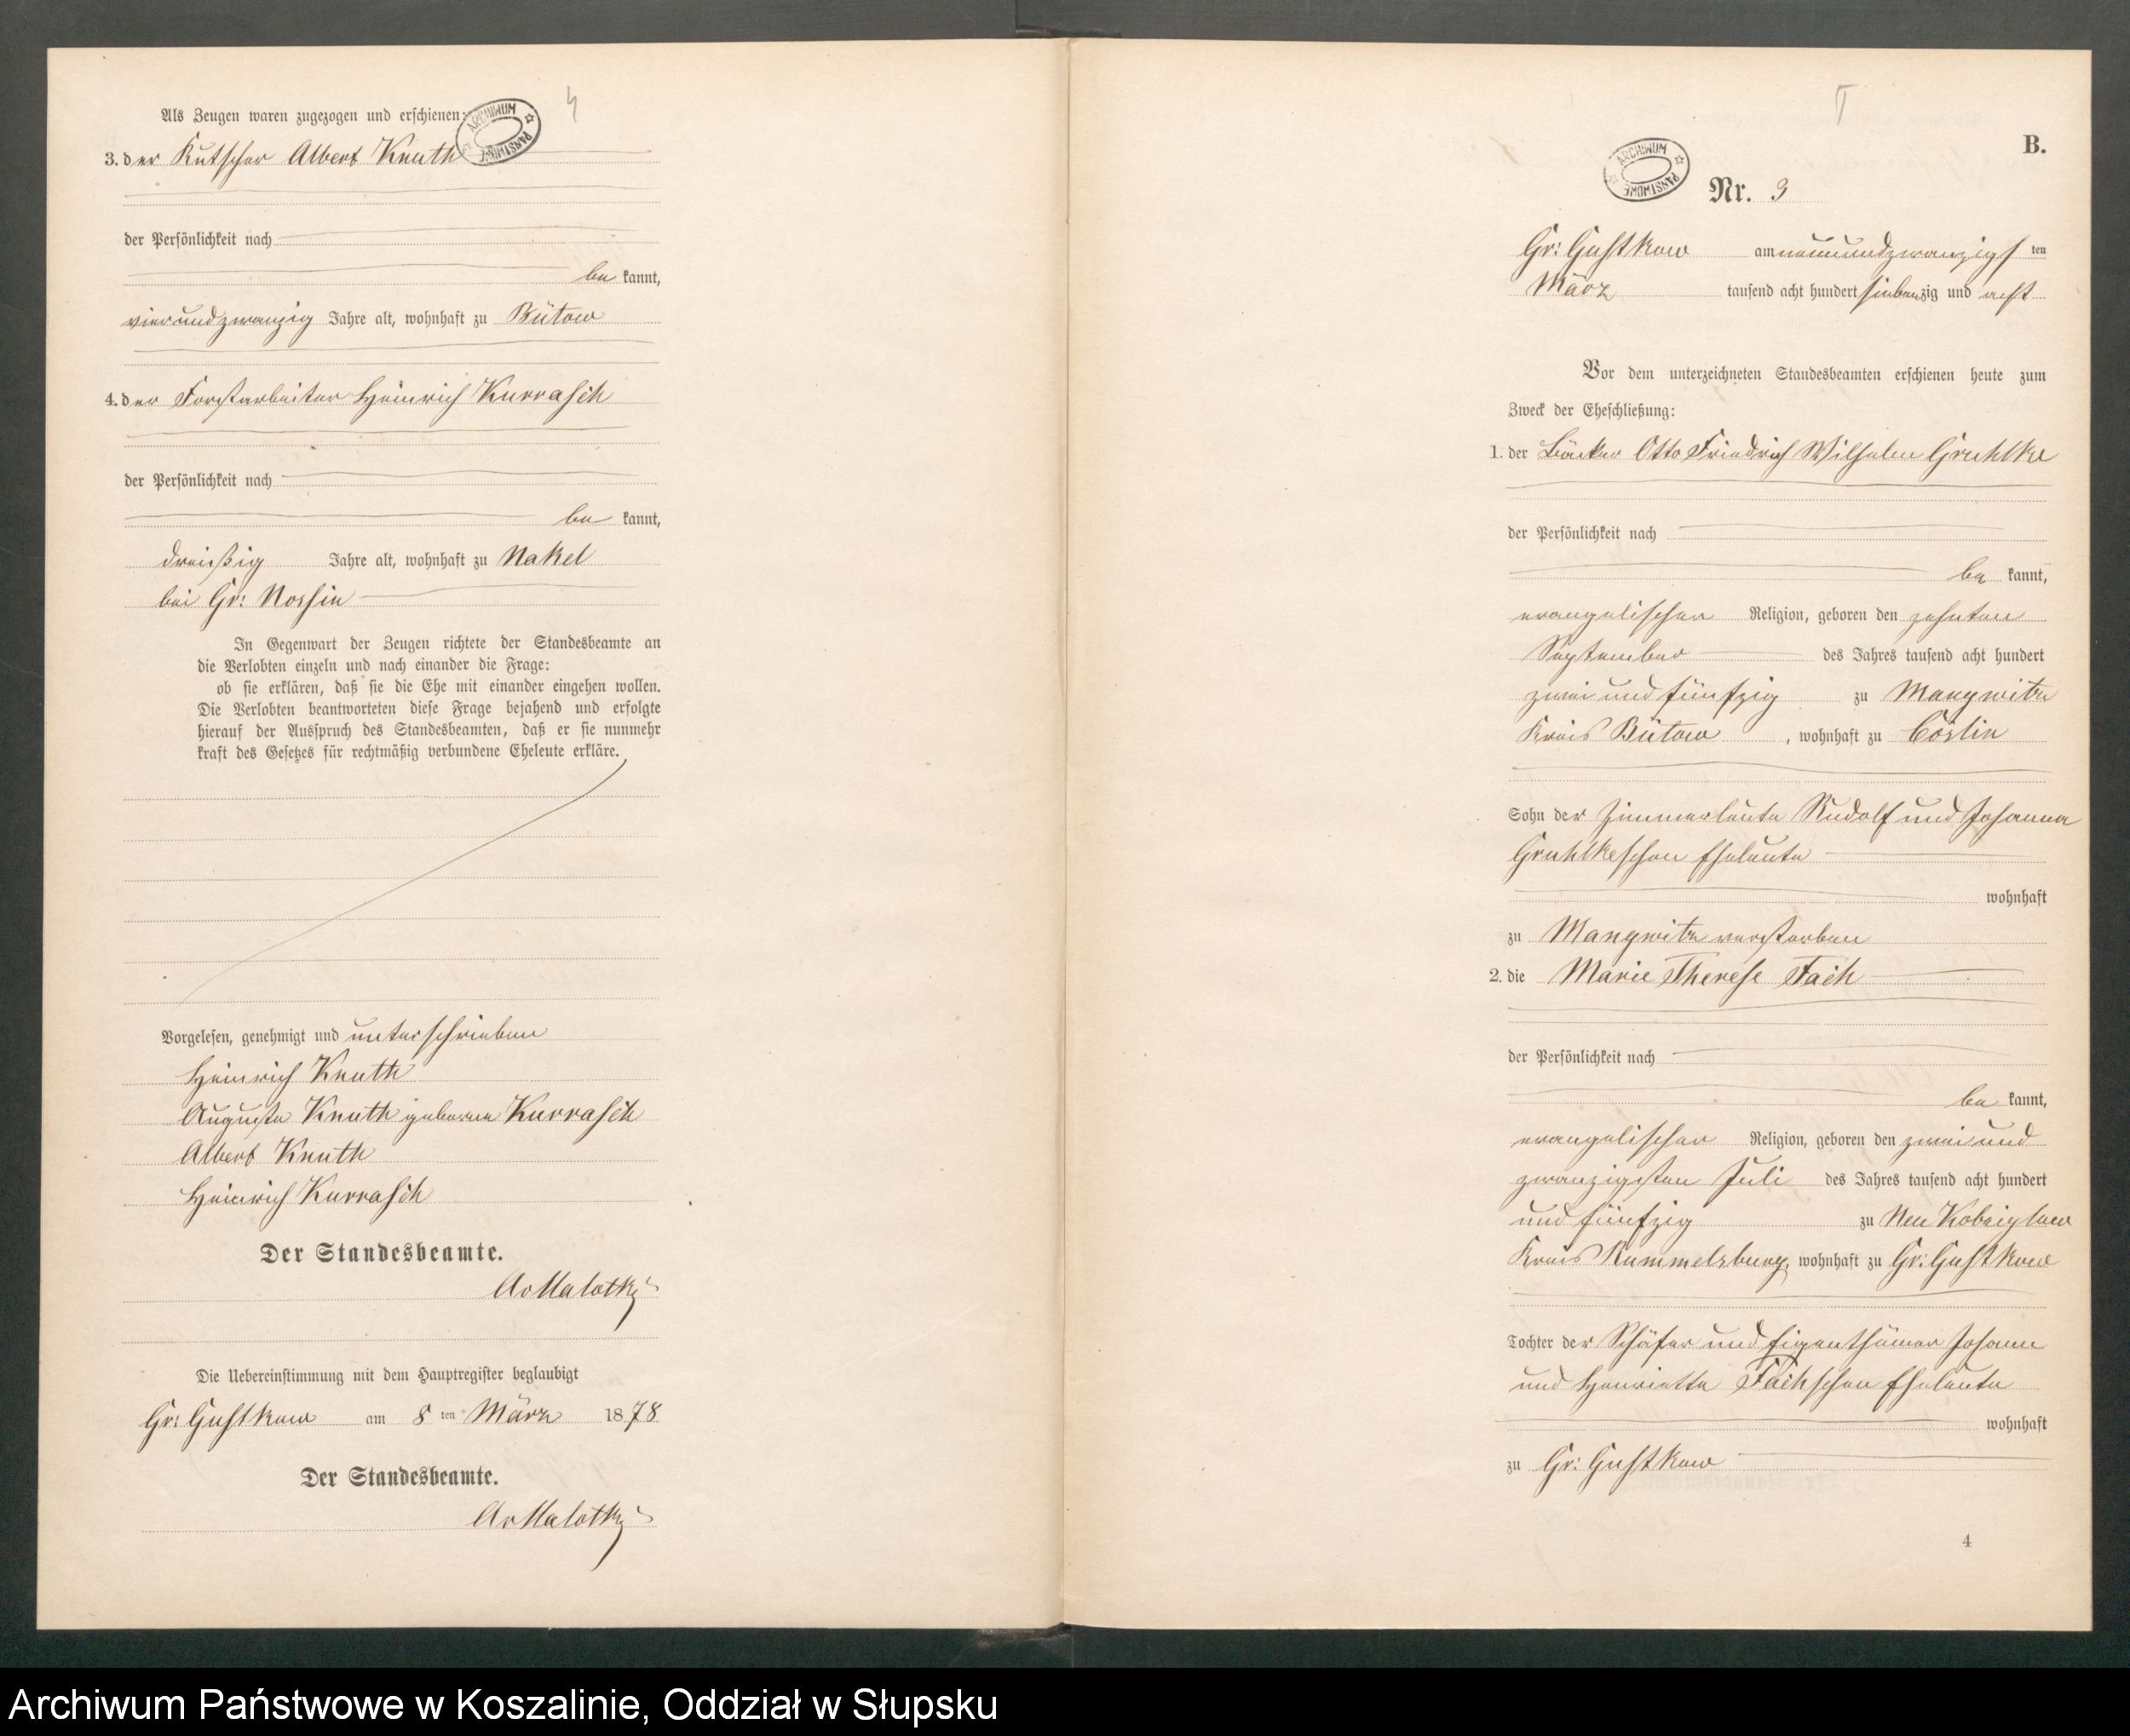 Als Zeugen waren zugezogen und erschienen:
4
ARCHIWUM PAŃSTWOWE
3. der Kutscher Albert Knuth
der Persönlichkeit nach
be kannt,
vierundzwanzig Jahre alt, wohnhaft zu Bütow
4. der Forstarbeiter Heinrich Kurrasch
der Persönlichkeit nach
be kannt,
dreißig Jahre alt, wohnhaft zu Nakel
bei Gr: Nossin
In Gegenwart der Zeugen richtete der Standesbeamte an
die Verlobten einzeln und nach einander die Frage:
ob sie erklären, daß sie die Ehe mit einander eingehen wollen.
Die Verlobten beantworteten diese Frage bejahend und erfolgte
hierauf der Ausspruch des Standesbeamten, daß er sie nunmehr
kraft des Gesetzes für rechtmäßig verbundene Eheleute erkläre.
Vorgelesen, genehmigt und unterschrieben
Heinrich Knuth
Auguste Knuth geborene Kurrasch
Albert Knuth
Heinrich Kurrasch
Der Standesbeamte.
AvMalotky
Die Uebereinstimmung mit dem Hauptregister beglaubigt
Gr: Gustkow am 8 ten März 1878
Der Standesbeamte.
AvMalotky
B.
ARCHIWUM PAŃSTWOWE
Nr. 3
Gr: Gustkow am neunundzwanzigs ten
März tausend acht hundert siebenzig und acht
Vor dem unterzeichneten Standesbeamten erschienen heute zum
Zweck der Eheschließung:
1. der Bäcker Otto Friedrich Wilhelm Gruhlke
der Persönlichkeit nach
be kannt,
evangelischer Religion, geboren den zehnten
September des Jahres tausend acht hundert
zwei und fünfzig zu Mangwitz
Kreis Bütow, wohnhaft zu Cöslin
Sohn der Zimmerleute Rudolf und Johanna
Gruhlkeschen Eheleute
wohnhaft
zu Mangwitz verstorben
2. die Marie Therese Fach
der Persönlichkeit nach
be kannt,
evangelischer Religion, geboren den zwei und
zwanzigsten Juli des Jahres tausend acht hundert
und fünfzig zu Neu Kolziglow
Kreis Rummelsburg, wohnhaft zu Gr: Gustkow
Tochter der Schäfer und Eigenthümer Johann
und Henriette Fachschen Eheleute
wohnhaft
zu Gr: Gustkow
4
Archiwum Państwowe w Koszalinie, Oddział w Słupsku